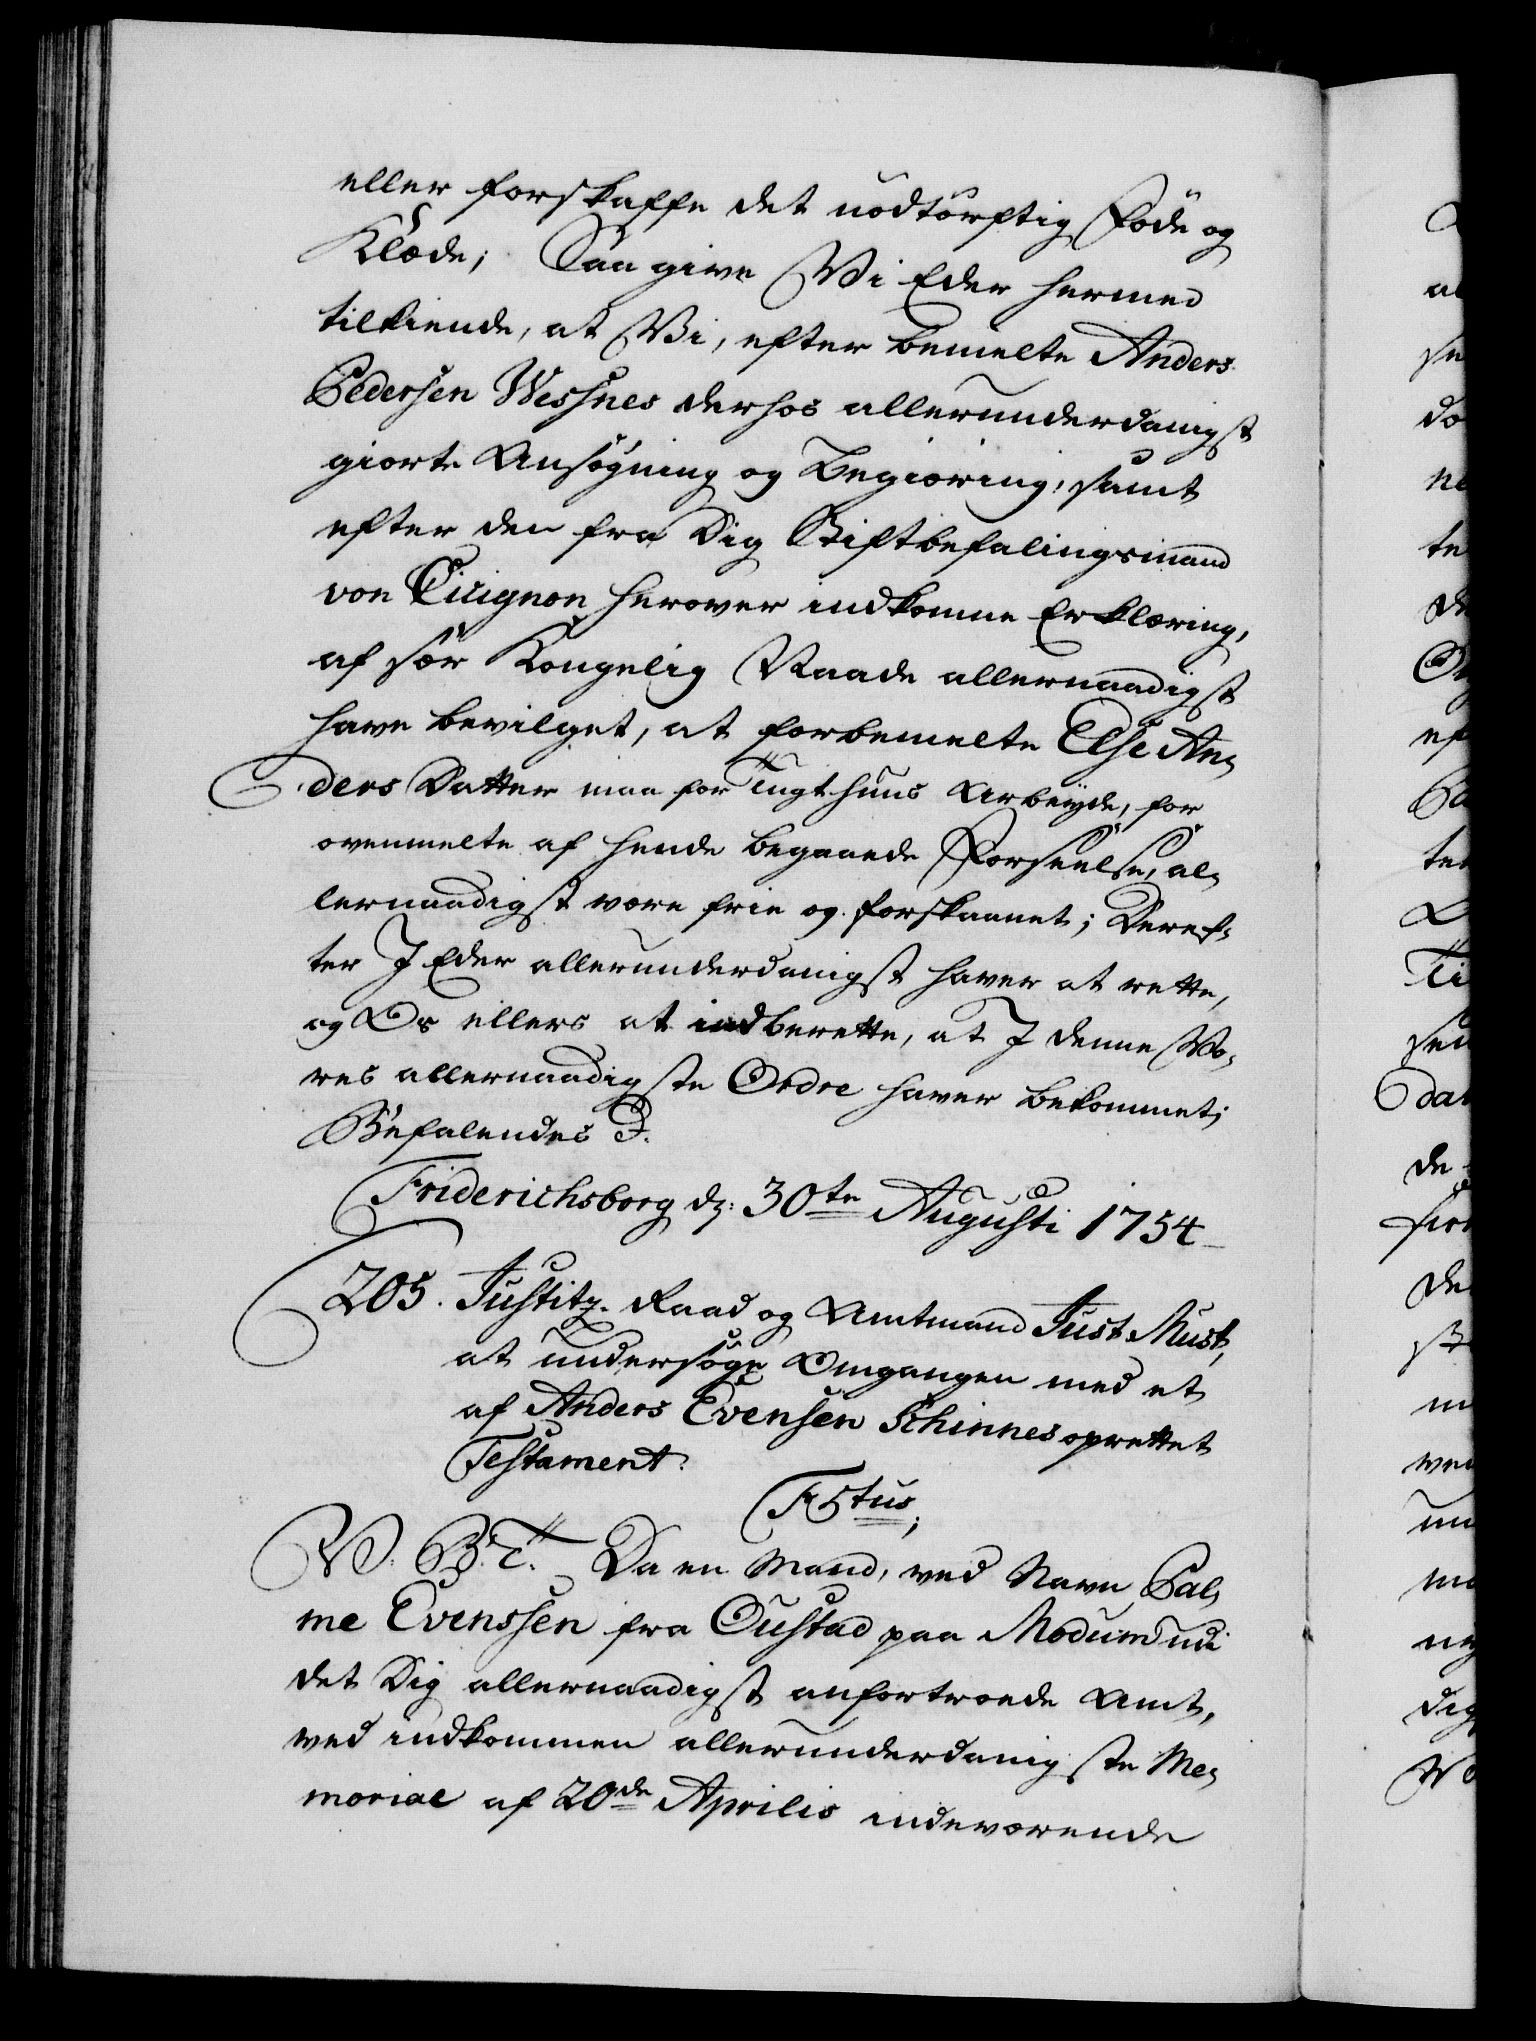 eller forskaffe det nödtörftig Föde og
Klæde; Saa give Vi Eder hermed
tilkiende, at Vi, efter bemelte Anders
Pedersen Wessnes derhos allerunderdanigst
giorte Ansögning og Begiæring, samt
efter den fra Dig Stiftbefalingsmand
von Cicignon herover indkomne Erklæring,
af sær Kongelig Naade allernaadigst
have bevilget, at forbemelte Else An-
ders Datter maa for Tugthuus Arbeyde, for
ovenmelte af hende begaaede Forseelse, al-
lernaadigst være frie og forskaanet; Deref-
ter I Eder allerunderdanigst haver at rette,
og Os ellers at indberette, at I denne Vo-
res allernaadigste Ordre haver bekommet;
Befalendes d.
Friderichsborg dz: 30te Augusti 1754
205. Justitz-Raad og Amtmand Just Must,
at undersöge Omgangen med et
af Anders Evensen Schinnes oprettet
Testament.
F5tus;
V. B. T. Da en Mand, ved Navn Pal-
me Evenssen fra Oustad paa Modum udi
det Dig allernaadigst anfortroede Amt,
ved indkommen allerunderdanigste Me-
morial af 20de Aprilis indeværende